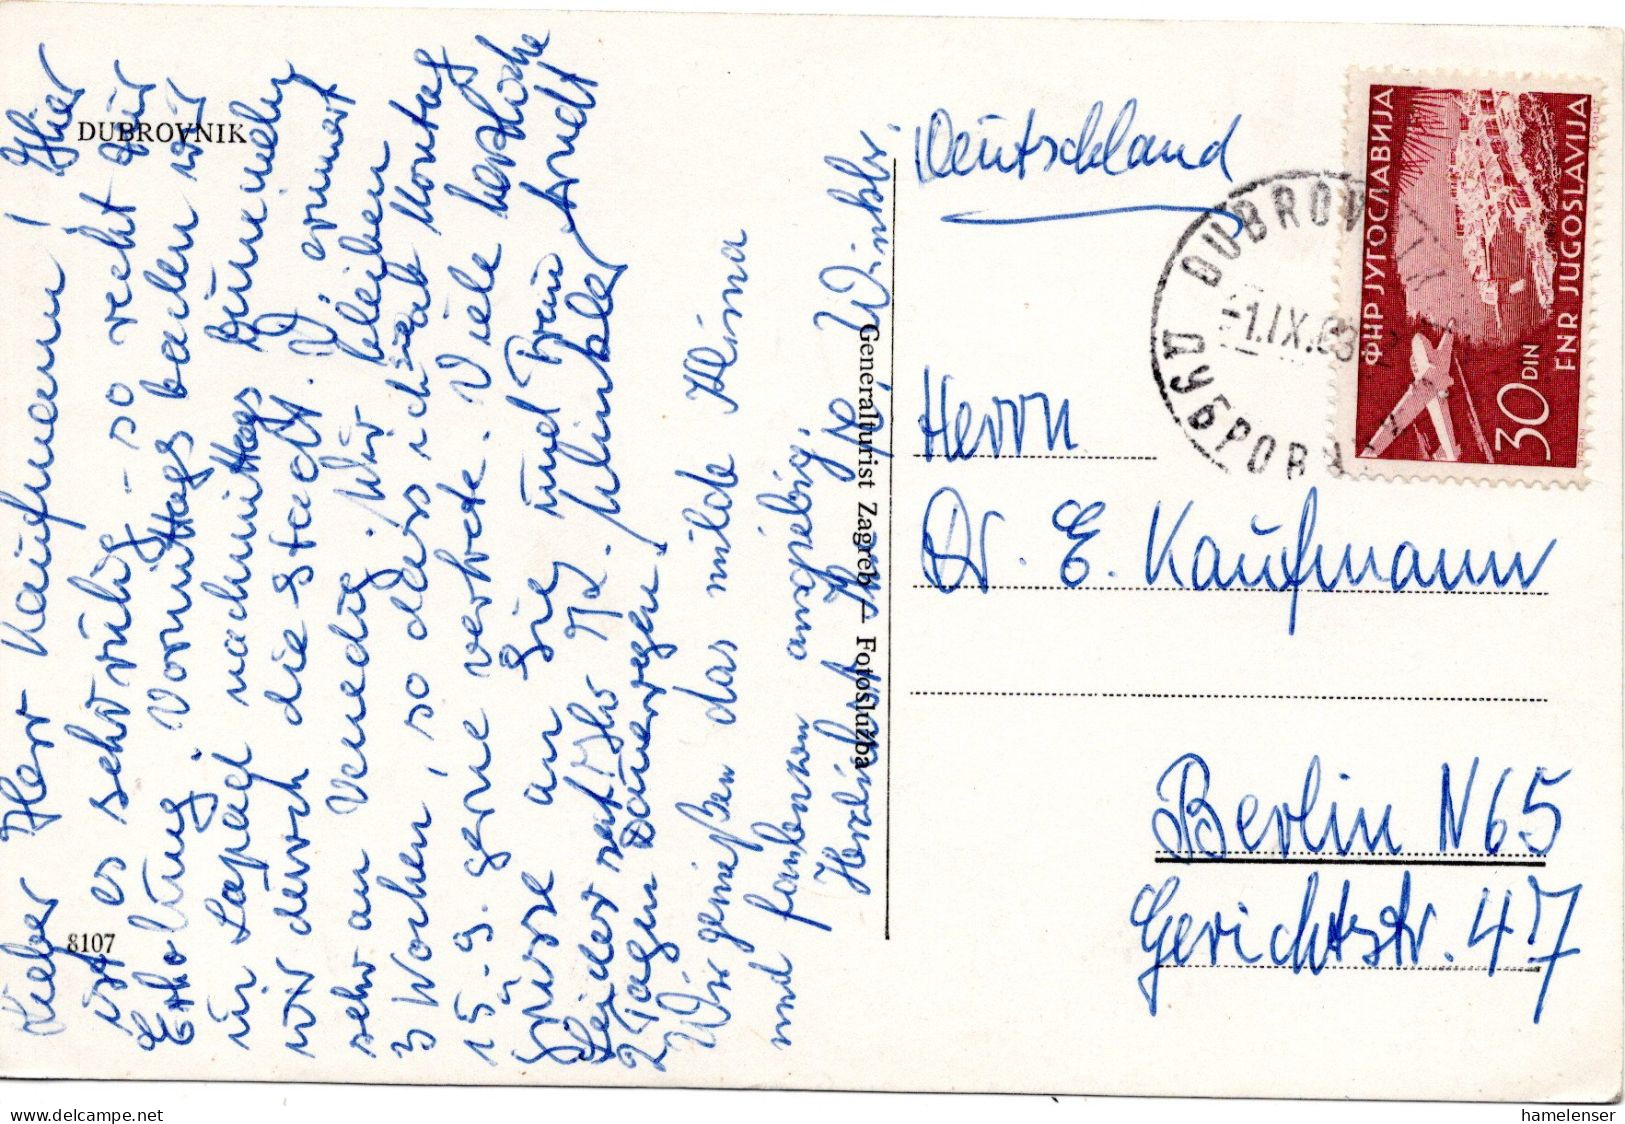 DUBROVNIK
8107
Lieber Herr Kaufmann! Hier
ist es sehr ruhig - so recht zur
Erholung. Vormittags baden wir
in Lapad nachmittags bummeln
wir durch die Stadt. D. erinnert
sehr an Venedig. Wir bleiben
3 Wochen, so dass ich ab Montag
15.9. gerne verbete. Viele herzliche
Grüsse an Sie und Frau Arndt
Ihr Winkler
Leider seit
2 Tagen Dauerregen!
Wir genießen das milde Klima
und faulenzen ausgiebig.
Herzlichst Winkler.
Generalturist Zagreb — Fotoslužba
Deutschland
Herrn
Dr. E. Kaufmann
Berlin N65
Gerichtstr. 47
DUBROVNIK
-1.IX.63
ДУБРОВНИК
ФНР ЈУГОСЛАВИЈА
30 DIN
FNR JUGOSLAVIJA
hamelenser